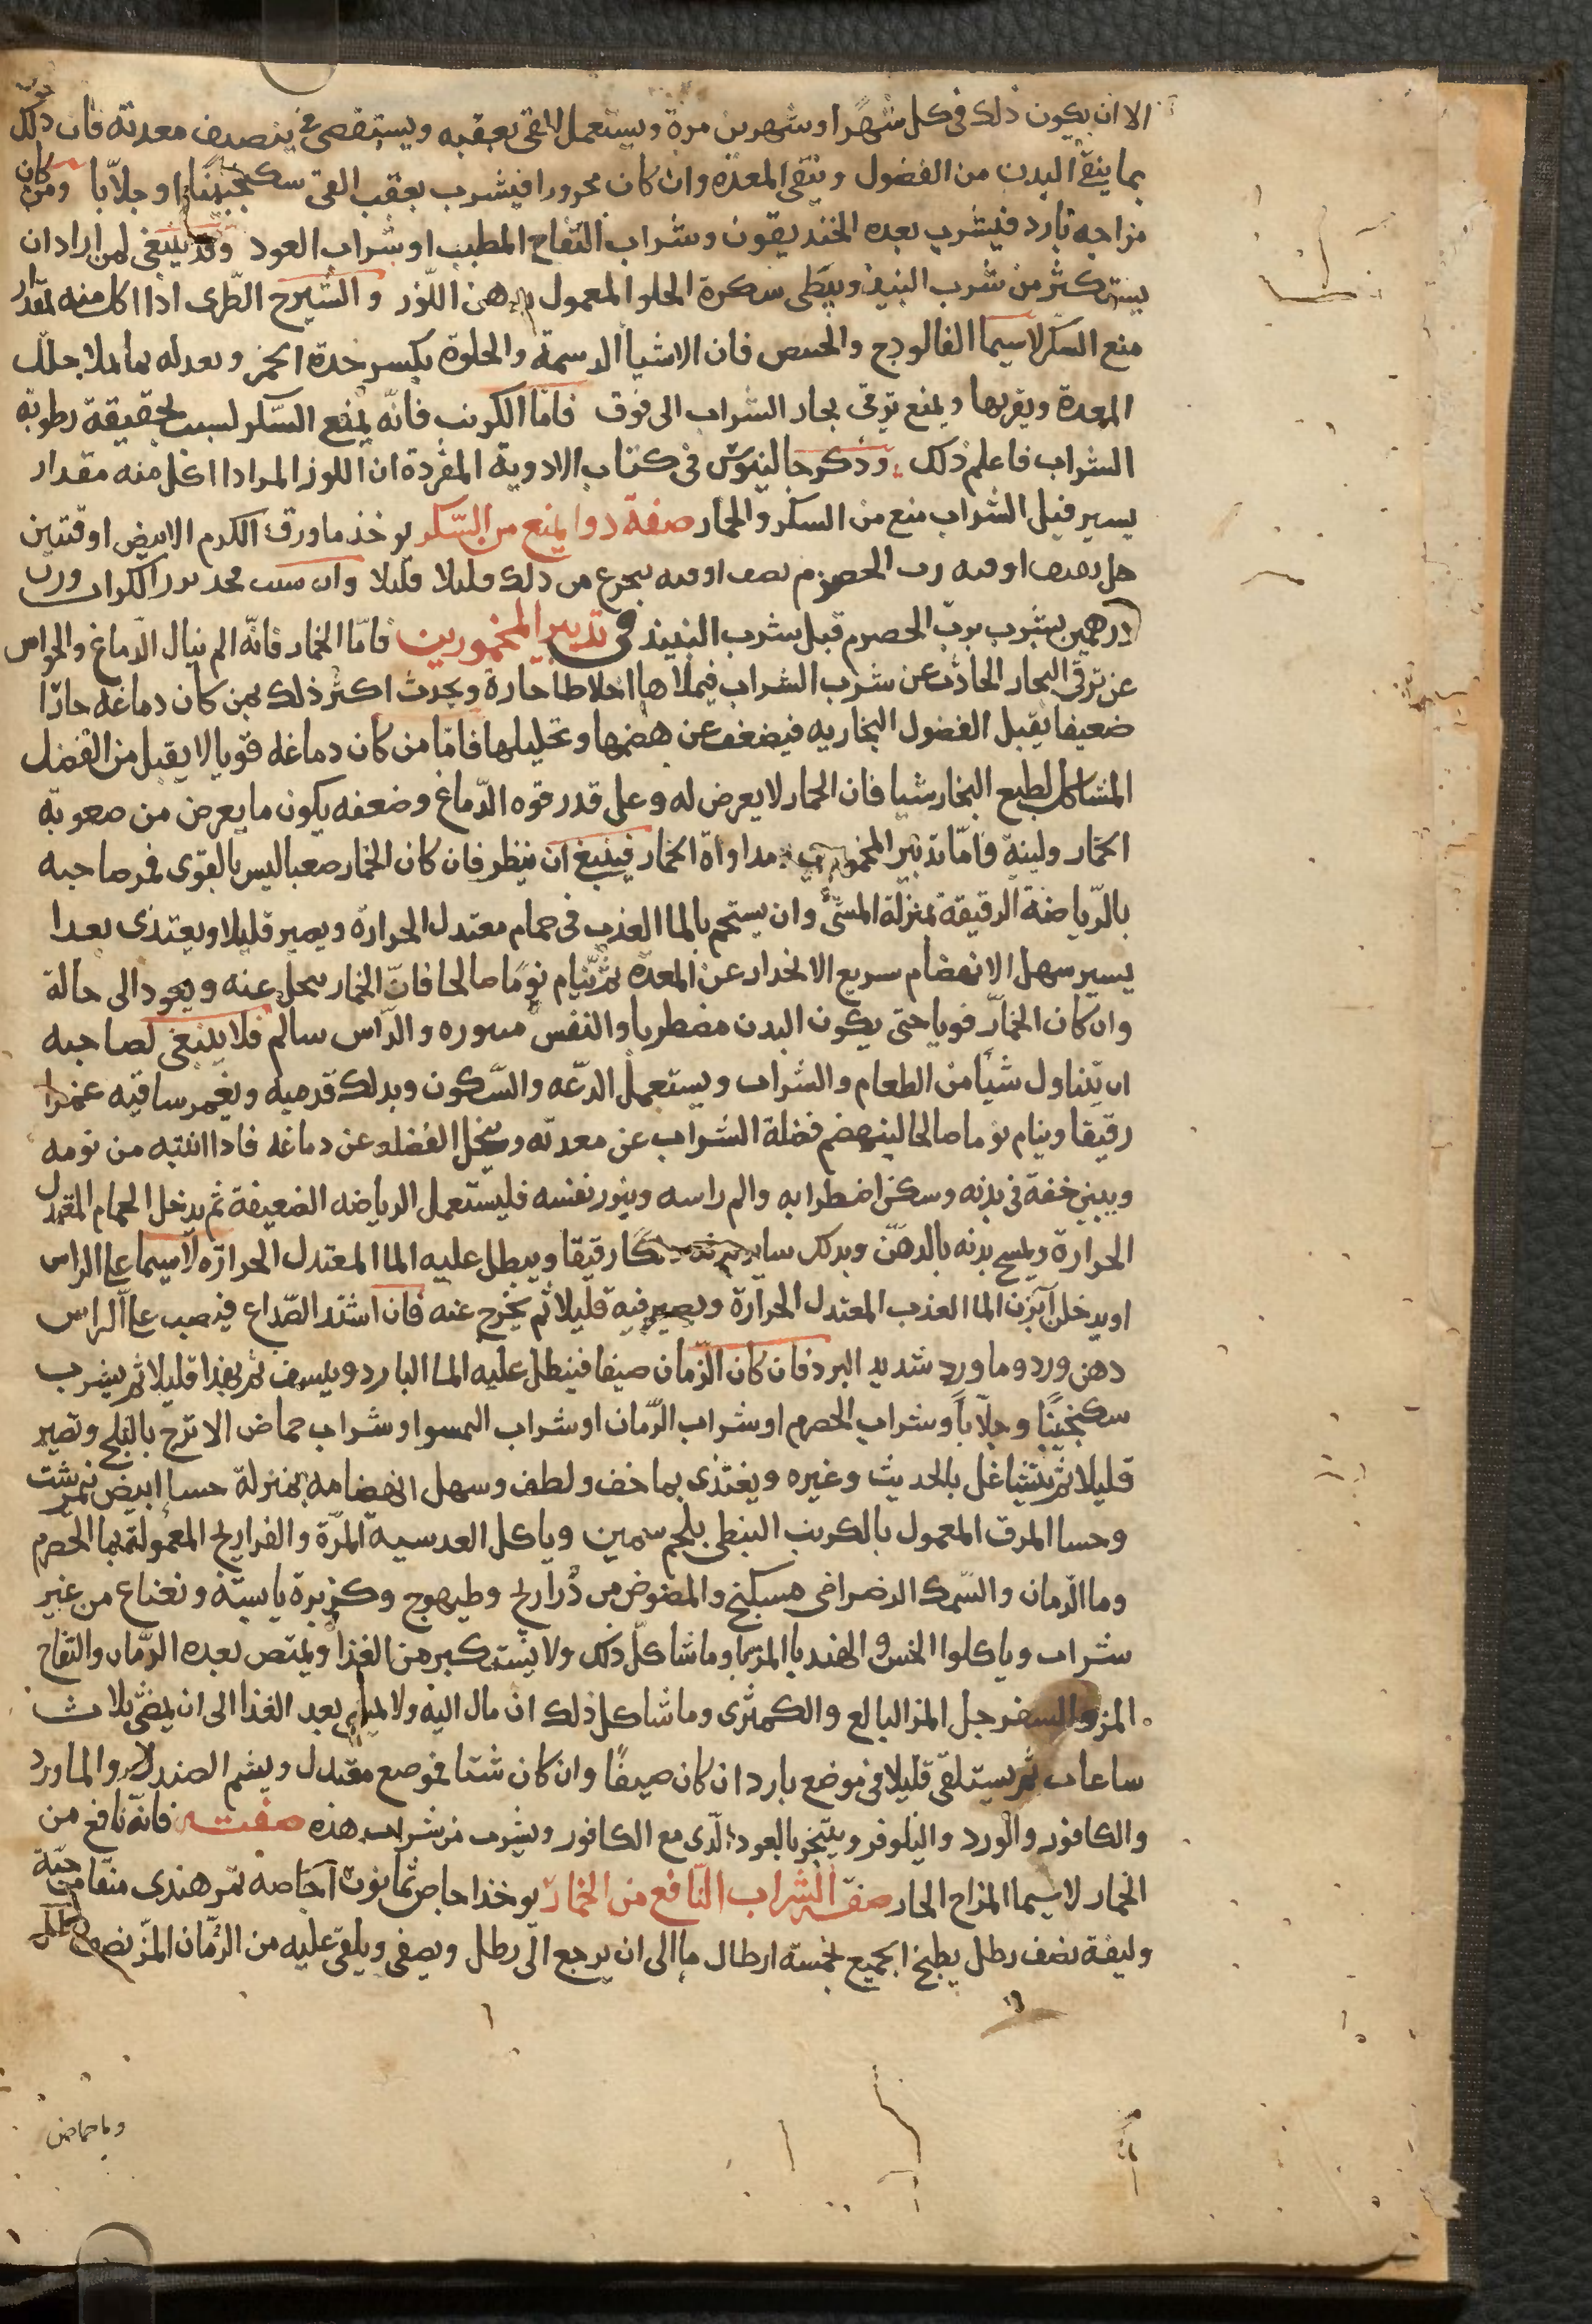 الا ان يكون ذلك فى كل شهرا او شهرين مرة ويستعمل القى بعقبه ويستقصى فى ينصيف معدته فان ذلك
بما ينقى البدن من الفضول وينقى المعده وان كان محرورا فيشرب بعقب القى سكنجبينا او جلابا ومن كان
مزاجه بارد فيشرب بعده الخنديقون وشراب التفاح المطيب او شراب العود وقد ينبغى لمن اراد ان
يستكثر من شرب النبيذ ويبطى سكره الحلو المعمول بدهن اللوز والشيرج الطرى اذا اكل منه مقدار
منع السكر لاسيما الفالودج والخبيص فان الاشيا الدسمة والحلوة يكسر حدة الخمر وبعدله بما
المعدة ويغريها ويمنع ترقى بخار الشراب الى فوق فاما الكرنب فانه يمنع السكر لسبب تجفيفة رطوبة
الشراب فاعلم ذلك وذكر جالينوس فى كتاب الادوية المفردة ان اللوز المر اذا اكل منه مقدار
يسير قبل الشراب منع من السكر والخمار صفة دوا يمنع من السكر يوخذ ما ورق الكرم الابيض اوقتين
خل نصف اوقيه رب الحصرم نصف اوقيه يتجرع من ذلك قليلا قليلا وان شيت فخذ بزر الكراث وزن
درهمين يشرب برب الحصرم قبل شرب النبيذ فى تدبير المخمورين فاما الخمار فانه الم ينال الدماغ والحواس
عن ترقى البخار الحادث عن شرب الشراب فيملاها اخلاطا حارة ويحدث اكثر ذلك بمن كان دماغه حارا
ضعيفا يقبل الفضول البخاريه فيضعف عن هضمها وتحليلها فاما من كان دماغه قويا لا يقبل من الفضل
المشاكل لطبع البخار شيا فان الخمار لا يعرض له وعلى قدر قوه الدماغ وضعفه يكون ما يعرض من صعوبة
الخمار ولينة فاما تدبير المخمورين مداواة الخمار فينبغ ان ينظر فان كان الخمار صعبا ليس بالقوى فمر صاحبه
بالرياضة الرقيقة بمنزلة المشى وان يستحم بالما العذب فى حمام معتدل الحرارة ويصير قليلا ويغتذى بغذا
يسير سهل الانهضام سريع الانحدار عن المعده ثم ينام نوما صالحا فان الخمار يتحلل عنه ويعود الى حالة
وان كان الخمار قويا حتى يكون البدن مضطربا والنفس مثوره والراس سالم فلا ينبغى لصاحبه
ان يتناول شيا من الطعام والشراب ويستعمل الدعه والسكون ويدلك قدميه ويغمر ساقيه غمزا
رقيقا وينام نوما صالحا لينهضم فضلة الشراب عن معدته وينحل الفضله عن دماغه فاذا انتبه من نومه
ويبين خفة فى بدنه وسكن اضطرابه والم راسه ويثور نفسه فليستعمل الرياضه الضعيفة ثم يدخل الحمام المعتدل
الحرارة ويمسح بدنه بالدهن ويدلك ساير بدنه دلكا رقيقا ويبطل عليه الما المعتدل الحرارة لاسيما على الراس
او يدخل آبزن الما العذب المعتدل الحرارة ويصير فيه قليلا ثم يخرج عنه فان اشتد الصداع فيصب على الراس
دهن ورد وما ورد شديد البرد فان كان الزمان صيفا فينطل عليه الما البارد وينشف ثم يهدا قليلا ثم يشرب
سكنجبينا وجلابا وشراب الحصرم او شراب الرمان او شراب او شراب حماض الاترج بالثلج وتصير
قليلا ثم يتشاغل بالحديث وغيره ويغتذى بما خف ولطف وسهل انهضامه بمنزلة حسا ابيض نمرشت
وحسا المرق المعمول بالكرنب النبطى بلحم سمين وياكل العدسية المرة والفراريج المعمولة بما الحصرم
وما الرمان والسمك الرضراضى مسكبج والمصوص من دراريج وطيهوج وكزبرة يابسة ونعناع من غير
شراب وياكلوا الخس و الهندبا المربا وما شاكل ذلك ولا يستكبر من الغذا ويمتص بعده الرمان والتفاح
المز والسفرجل المز البالع والكمثرى وما شاكل ذلك ان مال اليه ولا يمتلى بعد الغذا الى ان يمضى ثلاث
ساعات ثم يستلقى قليلا فى موضع بارد ان كان صيفا وان كان شتا فموضع معتدل ويشم الصندل والماورد
والكافور والورد والنيلوفر ويتبخر بالعود الذى مع الكافور ويشرب من شراب هذه صفته فانه نافع من
الخمار لاسيما المزاج الحار صفة الشراب النافع من الخمار يوخذ اجاص ثمانون اجاصه تمر هندى منقا من حبة
وليفة نصف رطل يطبخ الجميع بخمسة ارطال ما الى ان يرجع الى رطل ويصفى ويلقى عليه من الرمان المز نصف رطل
وما حماض